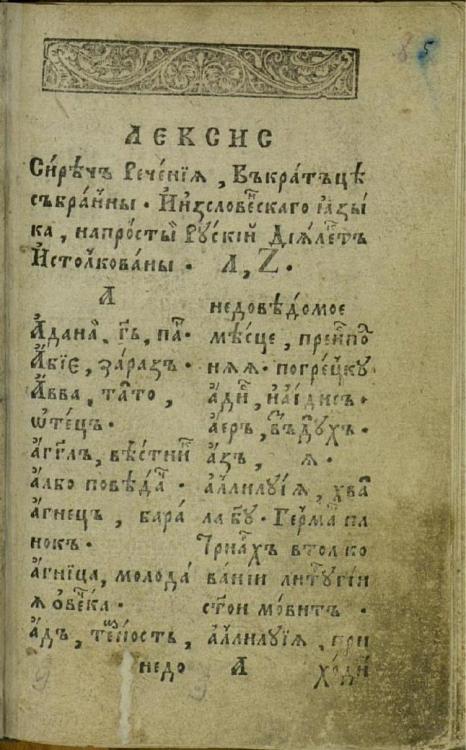 ЛЕКСИС
Си́рѣчъ Рече́нїѧ, Въкра́тъцѣ
събра́нны. И҆изслове́нскаго ꙗ҆зы́
ка, на просты́й Рꙋ́скїй Дїѧ́лектъ
И҆стол̾ко́ваны. А, Z.
А
А҆дѡнаі, гь҃, па.
А҆́бїє, за́разъ.
А҆́вва, та́то,
ѻ҆те́цъ.
а҆́гг҃лъ, вѣ́стник
а҆́лбо повѣ́дач.
а҆́гнецъ, бара́
нокъ.
а҆́гница, молода́
ѧ ѻ҆ве́чка.
а҆́дъ, те́мность,
недо
недовѣ́домое
мѣ́сце, преиспо
няѧ. погре́цкꙋ
а҆́ди, и҆а́идисъ.
а҆е́ръ, въздꙋхъ.
а҆́зъ, ѧ.
а҆ллилꙋ́їѧ, хва
ла бꙋ҃. Ге́рман па
трїа́рх в толко
ва́нїи литꙋргїи
ст҃ои мо́витъ.
а҆ллилꙋ́їѧ, при
А
хо́ди